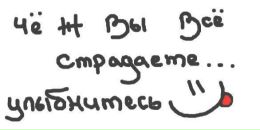 чё ж вы всё
страдаете...
улыбнитесь